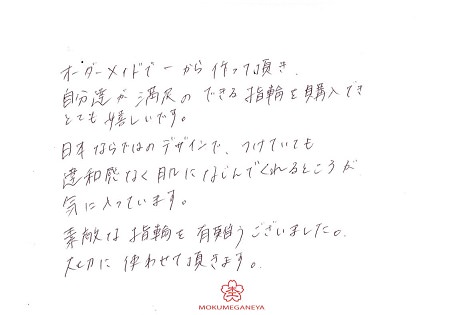 オーダーメイドで一から作って頂き、
自分達が満足のできる指輪を購入でき
とても嬉しいです。
日本ならではのデザインで、つけていても
違和感なく肌になじんでくれるところが
気に入っています。
素敵な指輪を有難うございました。
大切に使わせて頂きます。
MOKUMEGANEYA